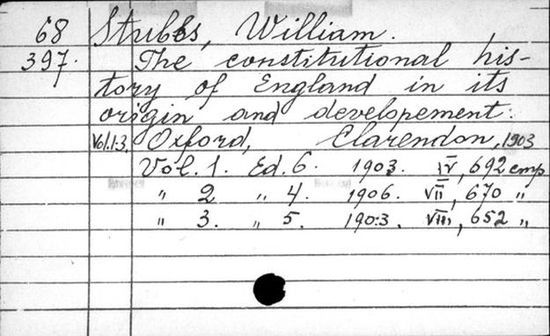 68 Stubbs, William.
397. The constitutional his-
tory of England in its
origin and developement.
Vol.1-3, Oxford, Clarendon, 1903
Vol. 1. Ed. 6. 1903. IV, 692 emp
„ 2 „ 4. 1906. VII, 670 „
„ 3. „ 5. 1903. VIII, 652 „